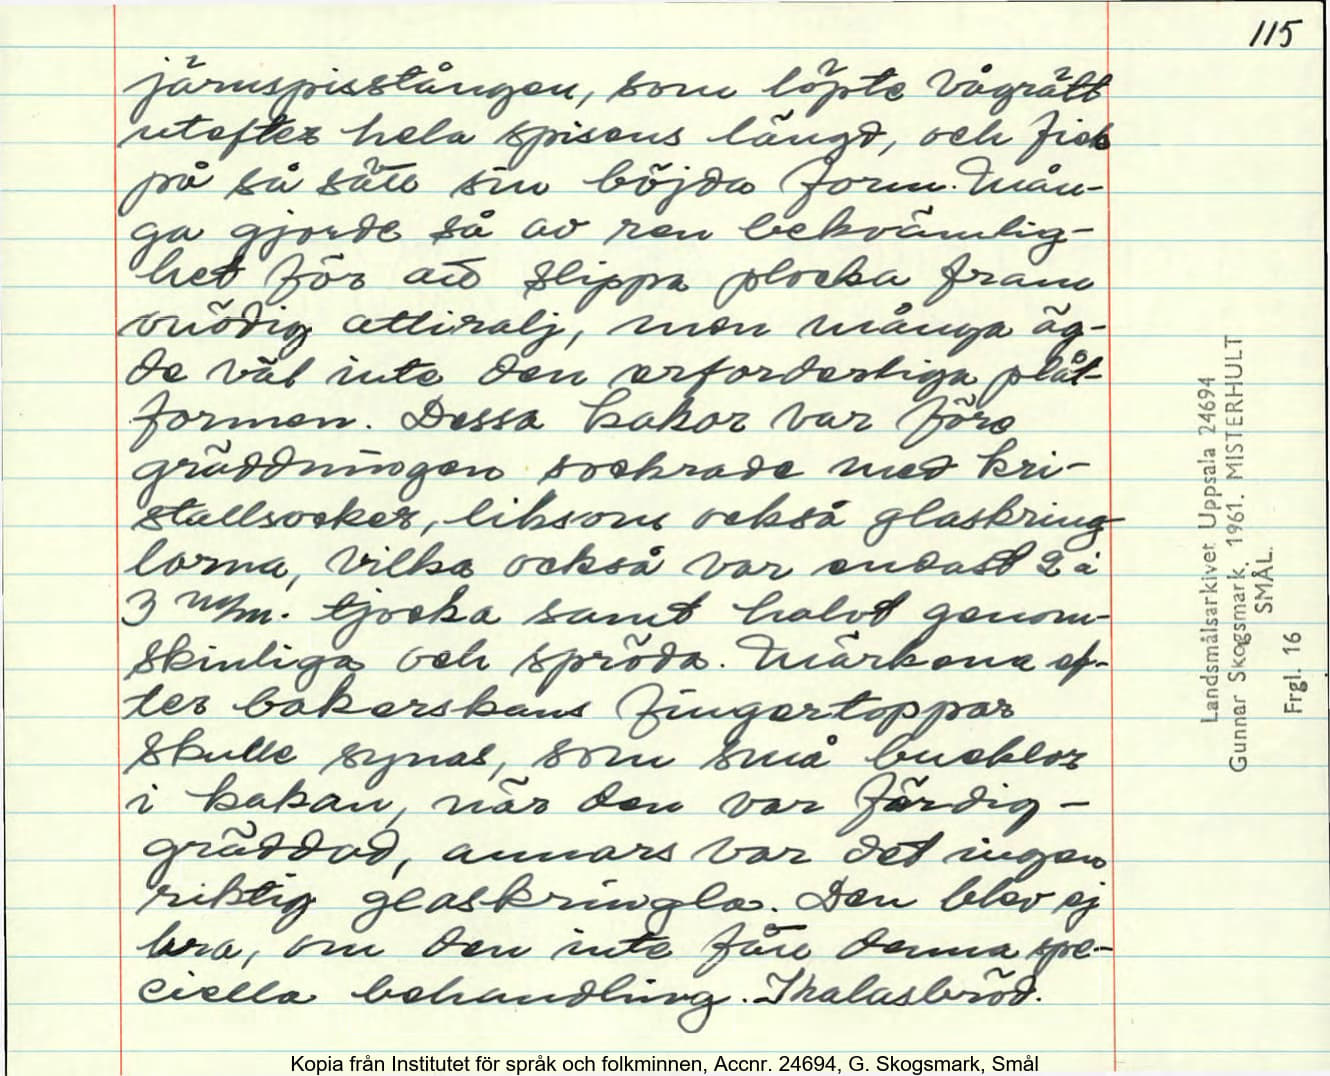 115
järnspisstången, som löpte vågrätt
utefter hela spisens längd, och fick
på så sätt sin böjda form. Mån-
ga gjorde så av ren bekvämlig-
het för att slippa plocka fram
onödig attiralj, men många äg-
de väl inte den erforderliga plåt-
formen. Dessa kakor var före
gräddningen sockrade med kri-
stallsocker, liksom också glaskring
lorna, vilka också var endast 2 à
3 m/m. tjocka samt halvt genom-
skinliga och spröda. Märkena ef-
ter bakerskans fingertoppar
skulle synas, som små bucklor
i kakan, när den var färdig-
gräddad, annars var det ingen
riktig glaskringla. Den blev ej
bra, om den inte fått denna spe-
ciella behandling. I kalasbröd.
Landsmålsarkivet Uppsala 24694
Gunnar Skogsmark, 1961. MISTERHULT
SMÅL.
Frgl. 16
Kopia från Institutet för språk och folkminnen, Accnr. 24694, G. Skogsmark, Smål